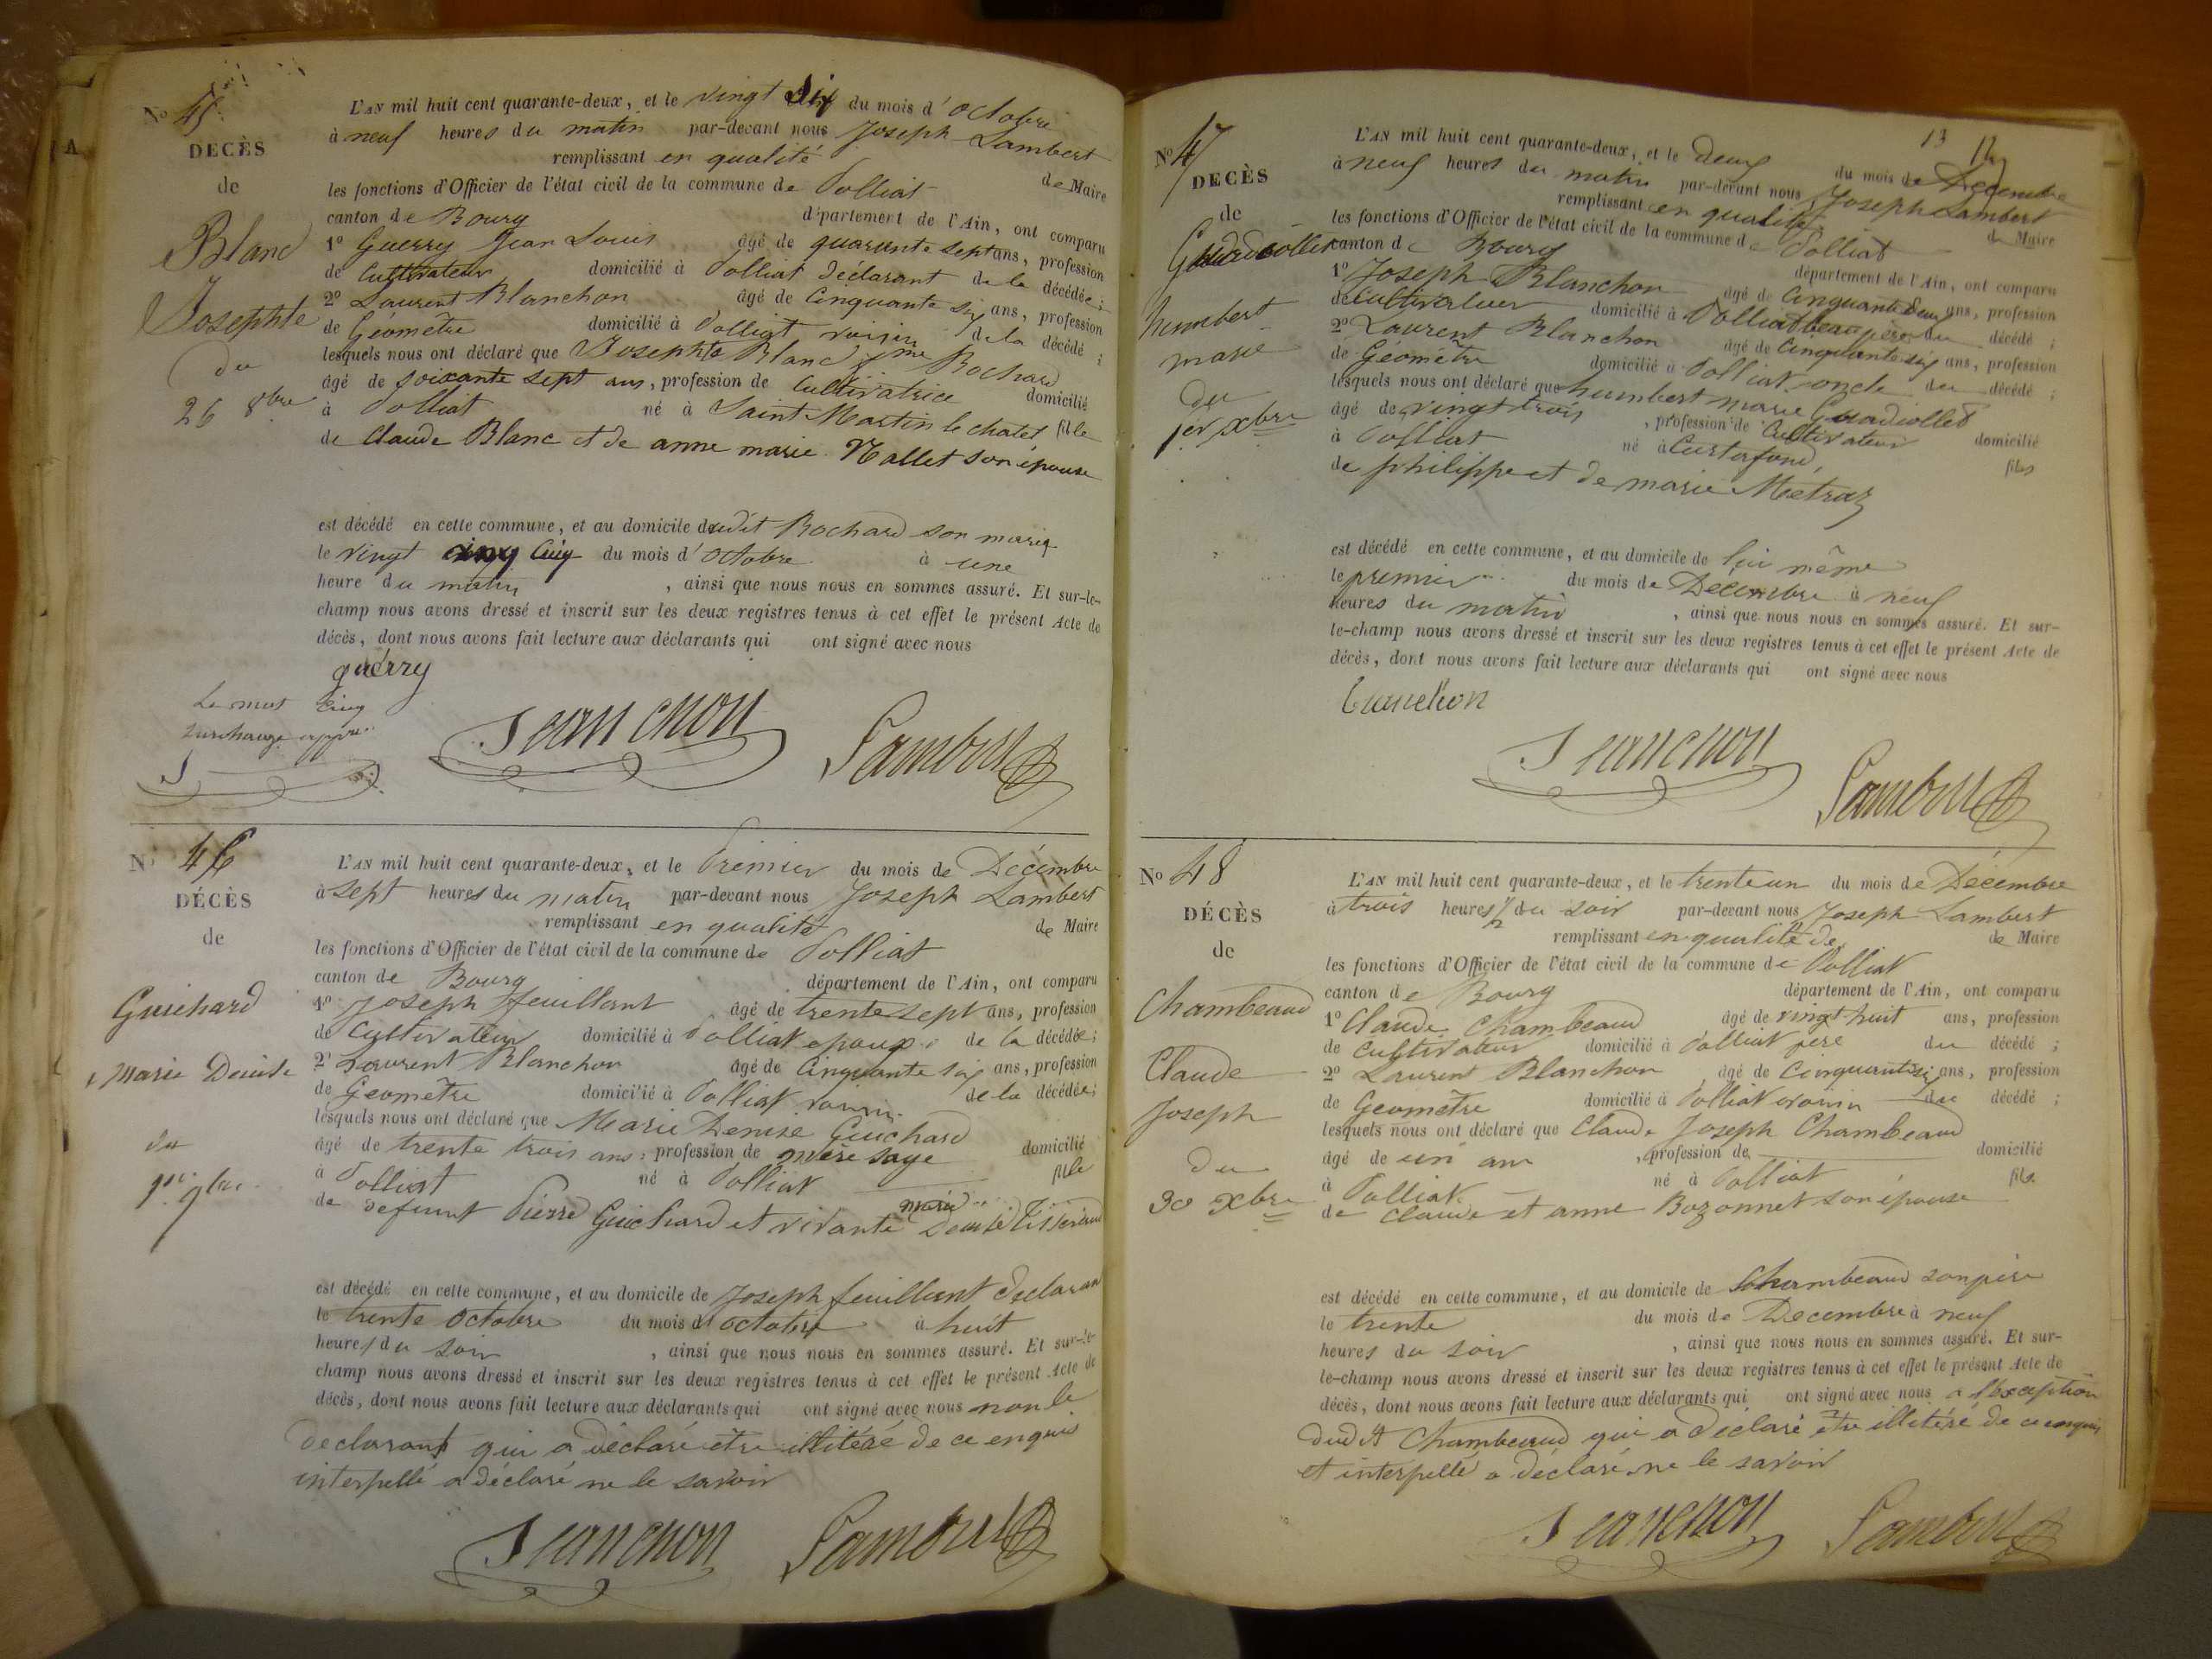 No 45
DECÈS
de
Blanc
Josephte
du
26 8bre
L'AN mil huit cent quarante-deux, et le vingt six du mois d'octobre
à neuf heures du matin par-devant nous Joseph Lambert
remplissant en qualité de Maire
les fonctions d'Officier de l'état civil de la commune de Polliat
canton de Bourg département de l'Ain, ont comparu
1o Guerry Jean Louis âgé de quarante sept ans, profession
de Cultivateur domicilié à Polliat déclarant de la décédée;
2o Laurent Blanchon âgé de Cinquante six ans, profession
de Géomêtre domicilié à Polliat voisin de la décédé;
lesquels nous ont déclaré que Josephte Blanc fme Bochard
âgé de soixante sept ans, profession de Cultivatrice domicilié
à Polliat né à Saint Martin le chatel fille
de Claude Blanc et de anne marie Mallet son épouse
est décédé en cette commune, et au domicile dudit Bochard son marie
le vingt cinq Cinq du mois d'octobre à une
heure du matin, ainsi que nous nous en sommes assuré. Et sur-le-
champ nous avons dressé et inscrit sur les deux registres tenus à cet effet le présent Acte de
décès, dont nous avons fait lecture aux déclarants qui ont signé avec nous
guérry
Le mot Cinq
surchargé appr.
Blanchon Lambert
No 46
DÉCÈS
de
Guichard
Marie Denise
du
1er 9bre
L'AN mil huit cent quarante-deux, et le Premier du mois de Décembre
à sept heures du matin par-devant nous Joseph Lambert
remplissant en qualité de Maire
les fonctions d'Officier de l'état civil de la commune de Polliat
canton de Bourg département de l'Ain, ont comparu
1o Joseph feuillant âgé de trente sept ans, profession
de Cultivateur domicilié à Polliat epoux de la décédée;
2o Laurent Blanchon âgé de Cinquante six ans, profession
de Geomêtre domicilié à Polliat voisin de la décédée;
lesquels nous ont déclaré que Marie Denise Guichard
âgé de trente trois ans, profession de mère sage domicilié
à Polliat né à Polliat fille
de defunt Pierre Guichard et vivante marie Denise Tisserand
est décédé en cette commune, et au domicile de Joseph feuillant declarant
le trente octobre du mois d'octobre à huit
heures du soir, ainsi que nous nous en sommes assuré. Et sur-le-
champ nous avons dressé et inscrit sur les deux registres tenus à cet effet le présent Acte de
décès, dont nous avons fait lecture aux déclarants qui ont signé avec nous non le
declarant qui a déclaré être illitéré de ce enquis
interpellé a déclaré ne le savoir
Blanchon Lambert
13
No 47
DECÈS
de
humbert
marie
du
1er xbre
L'AN mil huit cent quarante-deux, et le deux du mois de Decembre
à neuf heures du matin par-devant nous Joseph Lambert
remplissant en qualité de Maire
les fonctions d'Officier de l'état civil de la commune de Polliat
canton de Bourg département de l'Ain, ont comparu
1o Joseph Blanchon âgé de Cinquante Deux ans, profession
de Cultivateur domicilié à Polliat beau père du décédé;
2o Laurent Blanchon âgé de Cinquante six ans, profession
de Géomêtre domicilié à Polliat oncle du décédé;
lesquels nous ont déclaré que humbert marie
âgé de vingt trois, profession de Cultivateur domicilié
à Polliat né à Curtafond fils
de philippe et de marie Metraz
est décédé en cette commune, et au domicile de lui même
le premier du mois de Décembre à neuf
heures du matin, ainsi que nous nous en sommes assuré. Et sur-
le-champ nous avons dressé et inscrit sur les deux registres tenus à cet effet le présent Acte de
décès, dont nous avons fait lecture aux déclarants qui ont signé avec nous
blanchon
Blanchon Lambert
No 48
DÉCÈS
de
Chambeaud
Claude
Joseph
du
30 xbre
L'AN mil huit cent quarante-deux, et le trente un du mois de Décembre
à trois heures du soir par-devant nous Joseph Lambert
remplissant en qualité de de Maire
les fonctions d'Officier de l'état civil de la commune de Polliat
canton de Bourg département de l'Ain, ont comparu
1o Claude Chambeaud âgé de vingt huit ans, profession
de Cultivateur domicilié à Polliat père du décédé;
2o Laurent Blanchon âgé de Cinquante six ans, profession
de Geomêtre domicilié à Polliat voisin du décédé;
lesquels nous ont déclaré que Claude Joseph Chambeaud
âgé de un an, profession de domicilié
à Polliat né à Polliat fils
de Claude et anne Bozonnet son épouse
est décédé en cette commune, et au domicile de Chambeaud son père
le trente du mois de Decembre à neuf
heures du soir, ainsi que nous nous en sommes assuré. Et sur-
le-champ nous avons dressé et inscrit sur les deux registres tenus à cet effet le présent Acte de
décès, dont nous avons fait lecture aux déclarants qui ont signé avec nous a l'exception
dudit Chambeaud qui a declaré etre illitéré de ce enquis
et interpellé a déclaré ne le savoir
Blanchon Lambert